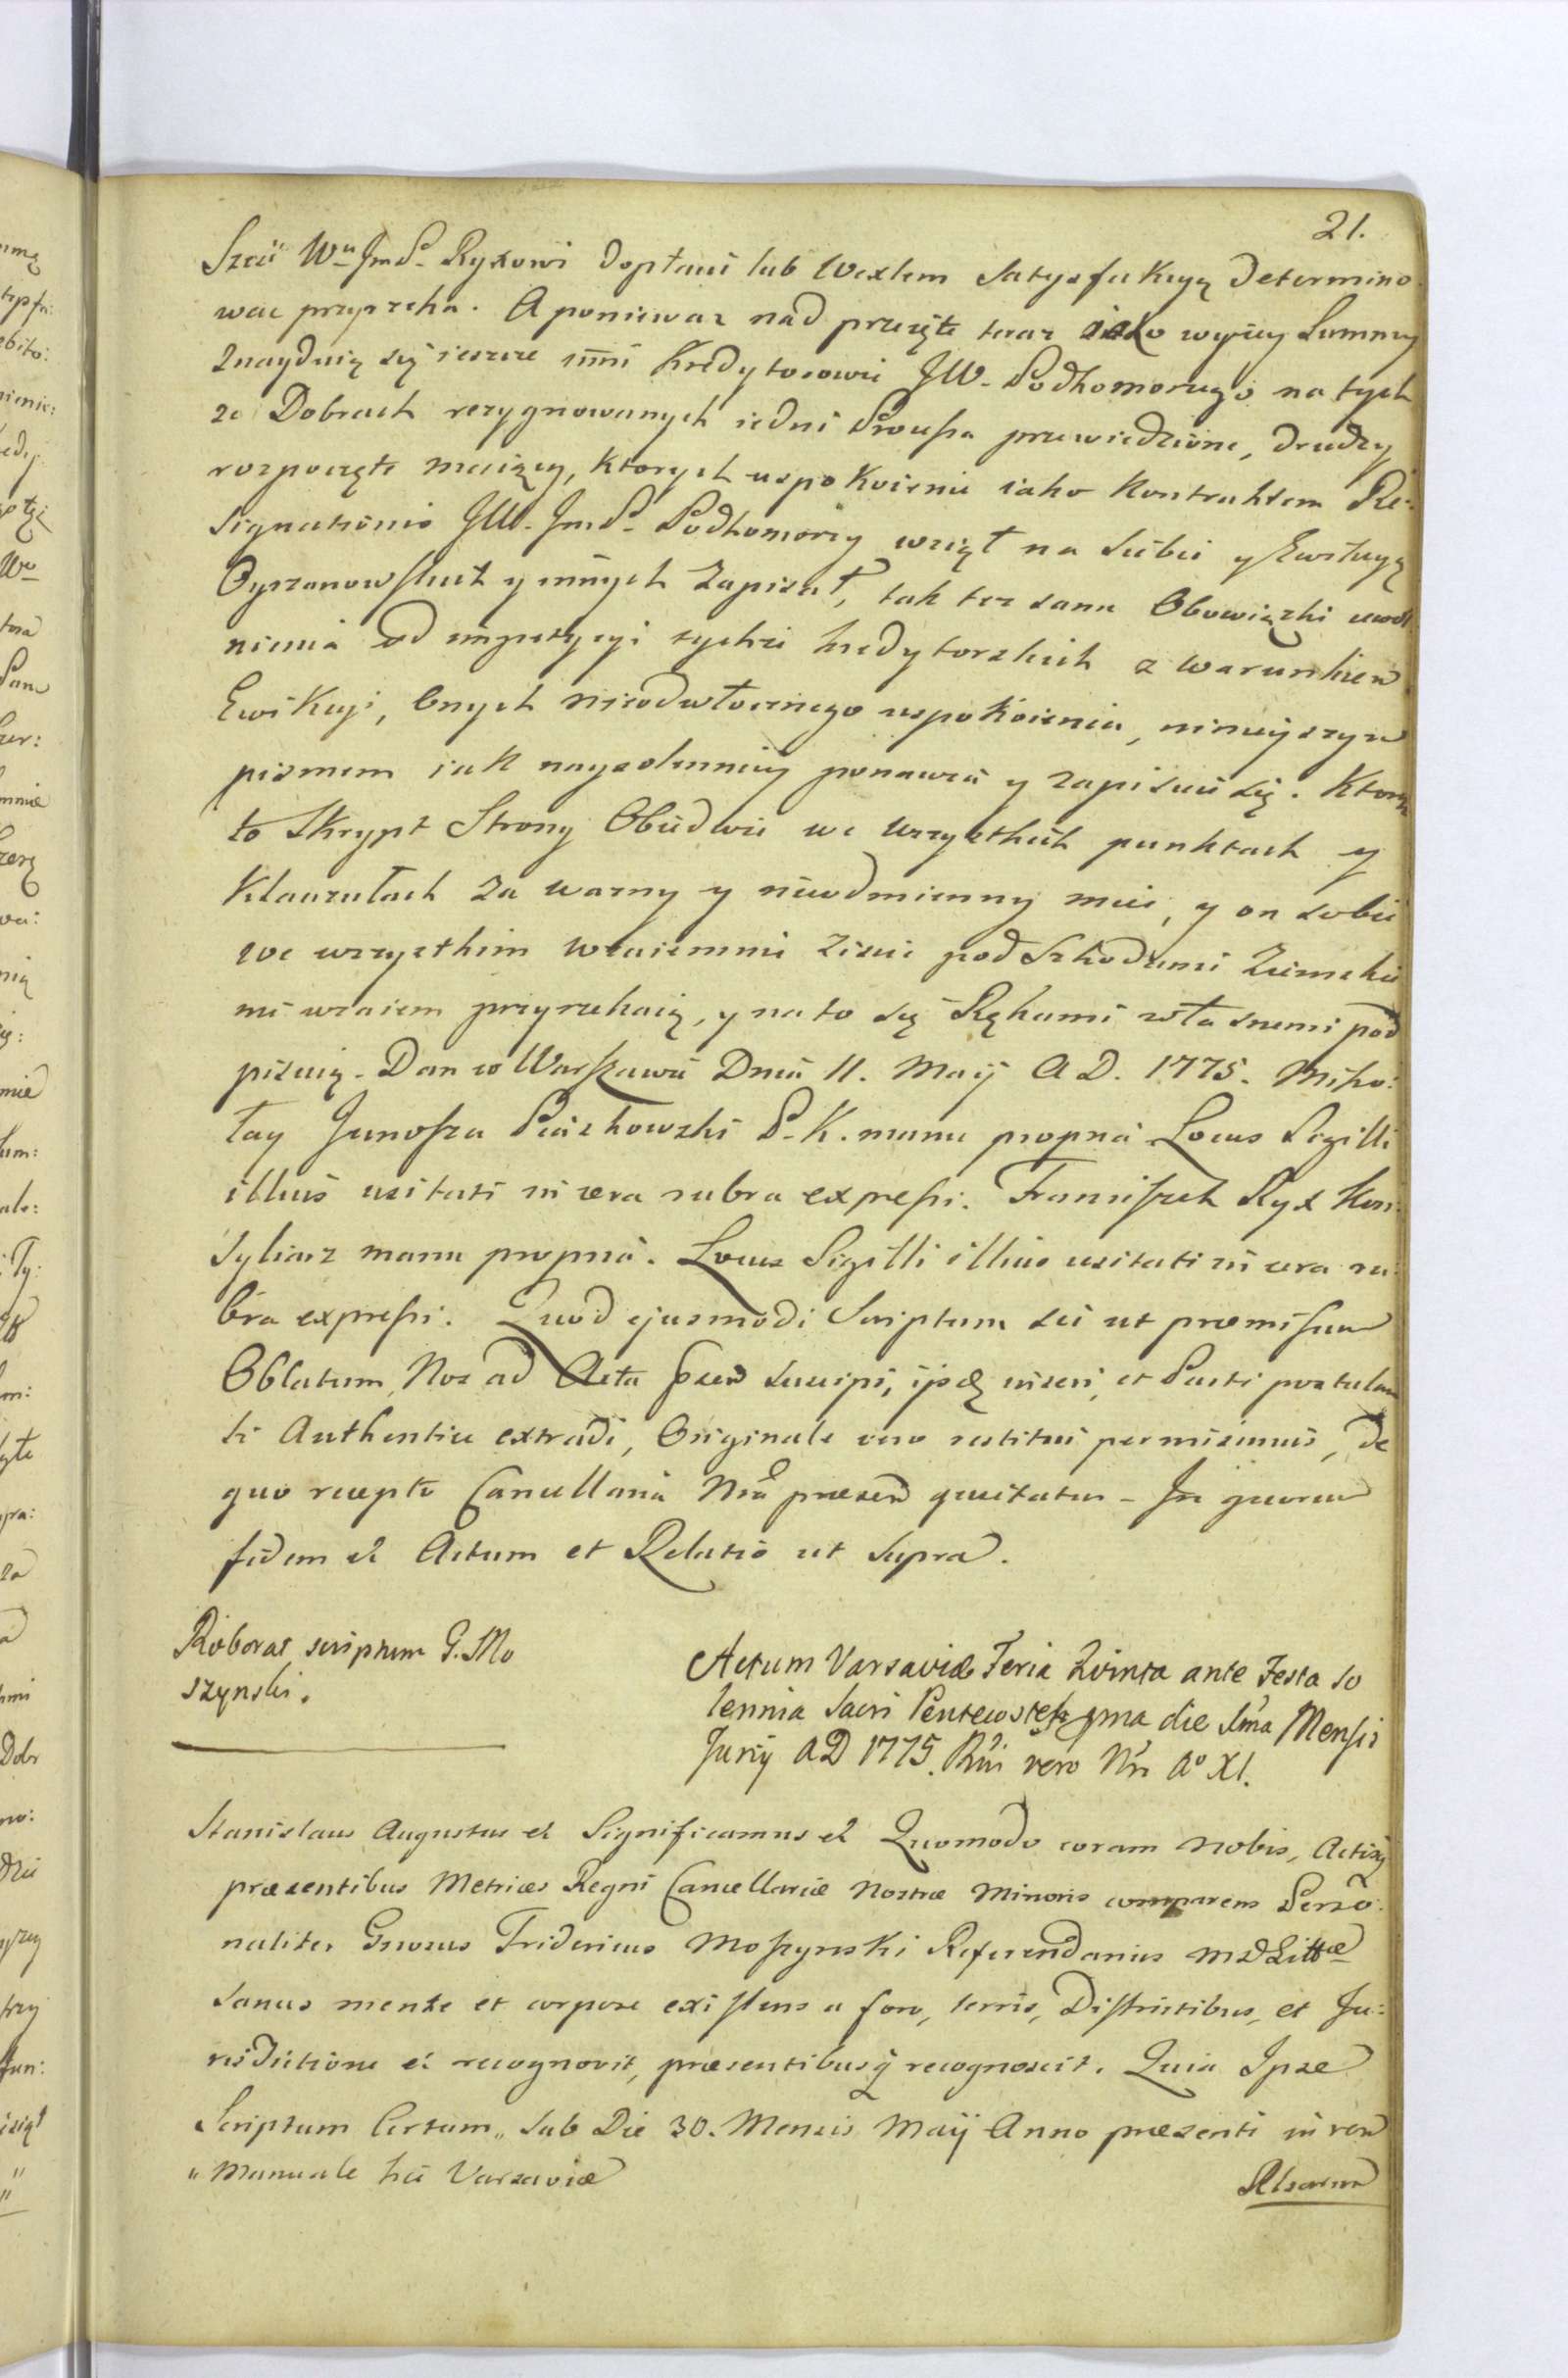 21.
Szcii Wu JmP. Ryxowi dopłacić lub Wexlem Satysfakcyą determino
wać przyrzeka. A ponieważ nad przeięte teraz iako wyżey Summy
Znayduią się ieszcze inni Kredytorowie JW. Podkomorzego na tych
że Dobrach rezygnowanych iedni Processa przewiedzione, drudzy
rozpoczęte maiący, ktorych uspokoienie iako Kontraktem Re:
signationis JW. JmP. Podkomorzy wziął na siebie y Ewikcyą
Oyrzanowskich y innych Zapisał, tak też same Obowiązki uwol
nienia od impetycyi tychże kredytorskich z warunkiem
Ewikcyi, Onych nieodwłocznego uspokoienia, ninieyszym
pismem iak naysolenniey ponawia y zapisuie się. Ktory
to Skrypt Strony Obiedwie we wszystkich punktach y
Klauzułach za ważny y nieodmienny mieć, y on sobie
we wszystkim wzaiemnie ziścić pod Szkodami Ziemskie
mi wzaiem przyrzekaią, y na to się Rękami własnemi pod
pisuią. Dan w Warszawie Dnia 11. Maij A D. 1775. Miko:
łay Junosza Piaskowski P. K. manu propria Locus Sigilli
illius usitati in cera rubra expressi. Franciszek Ryx Kon:
syliarz manu propria. Locus Sigilli illius usitati in cera ru:
bra expressi. Quod ejusmodi Scriptum sic ut præmissum
Oblatum, Nos ad Acta præsen suscipi, ijsq inseri, et Parti postulan
ti Authentice extradi, Originale vero restitui permisimus, de
quo recepto Cancellaria Nra præsen quietatur. In quorum
fidem et Actum et Relatio ut supra.
Roborat scriptum G. Mo
szynski.
Actum Varsaviæ Feria Quinta ante Festa so
lennia Sacri Pentecostes qma die Ima Mensis
Junij AD 1775. Rni vero Nri Ao XI.
Stanislaus Augustus et Significamus et Quomodo coram nobis, Actisq
præsentibus Metrices Regni Cancellariæ Nostræ Minoris comparens Perso:
naliter Gnosus Fridericus Moszynski Referendarius MDLittæ
Sanus mente et corpore existens a foro, terris, Districtibus, et Ju:
risdictione et recognovit, præsentibusq recognoscit. Quia Ipse
Scriptum Certum „ Sub Die 30. Mensis Maij Anno præsenti in rem
„ Manuale hic Varsaviæ